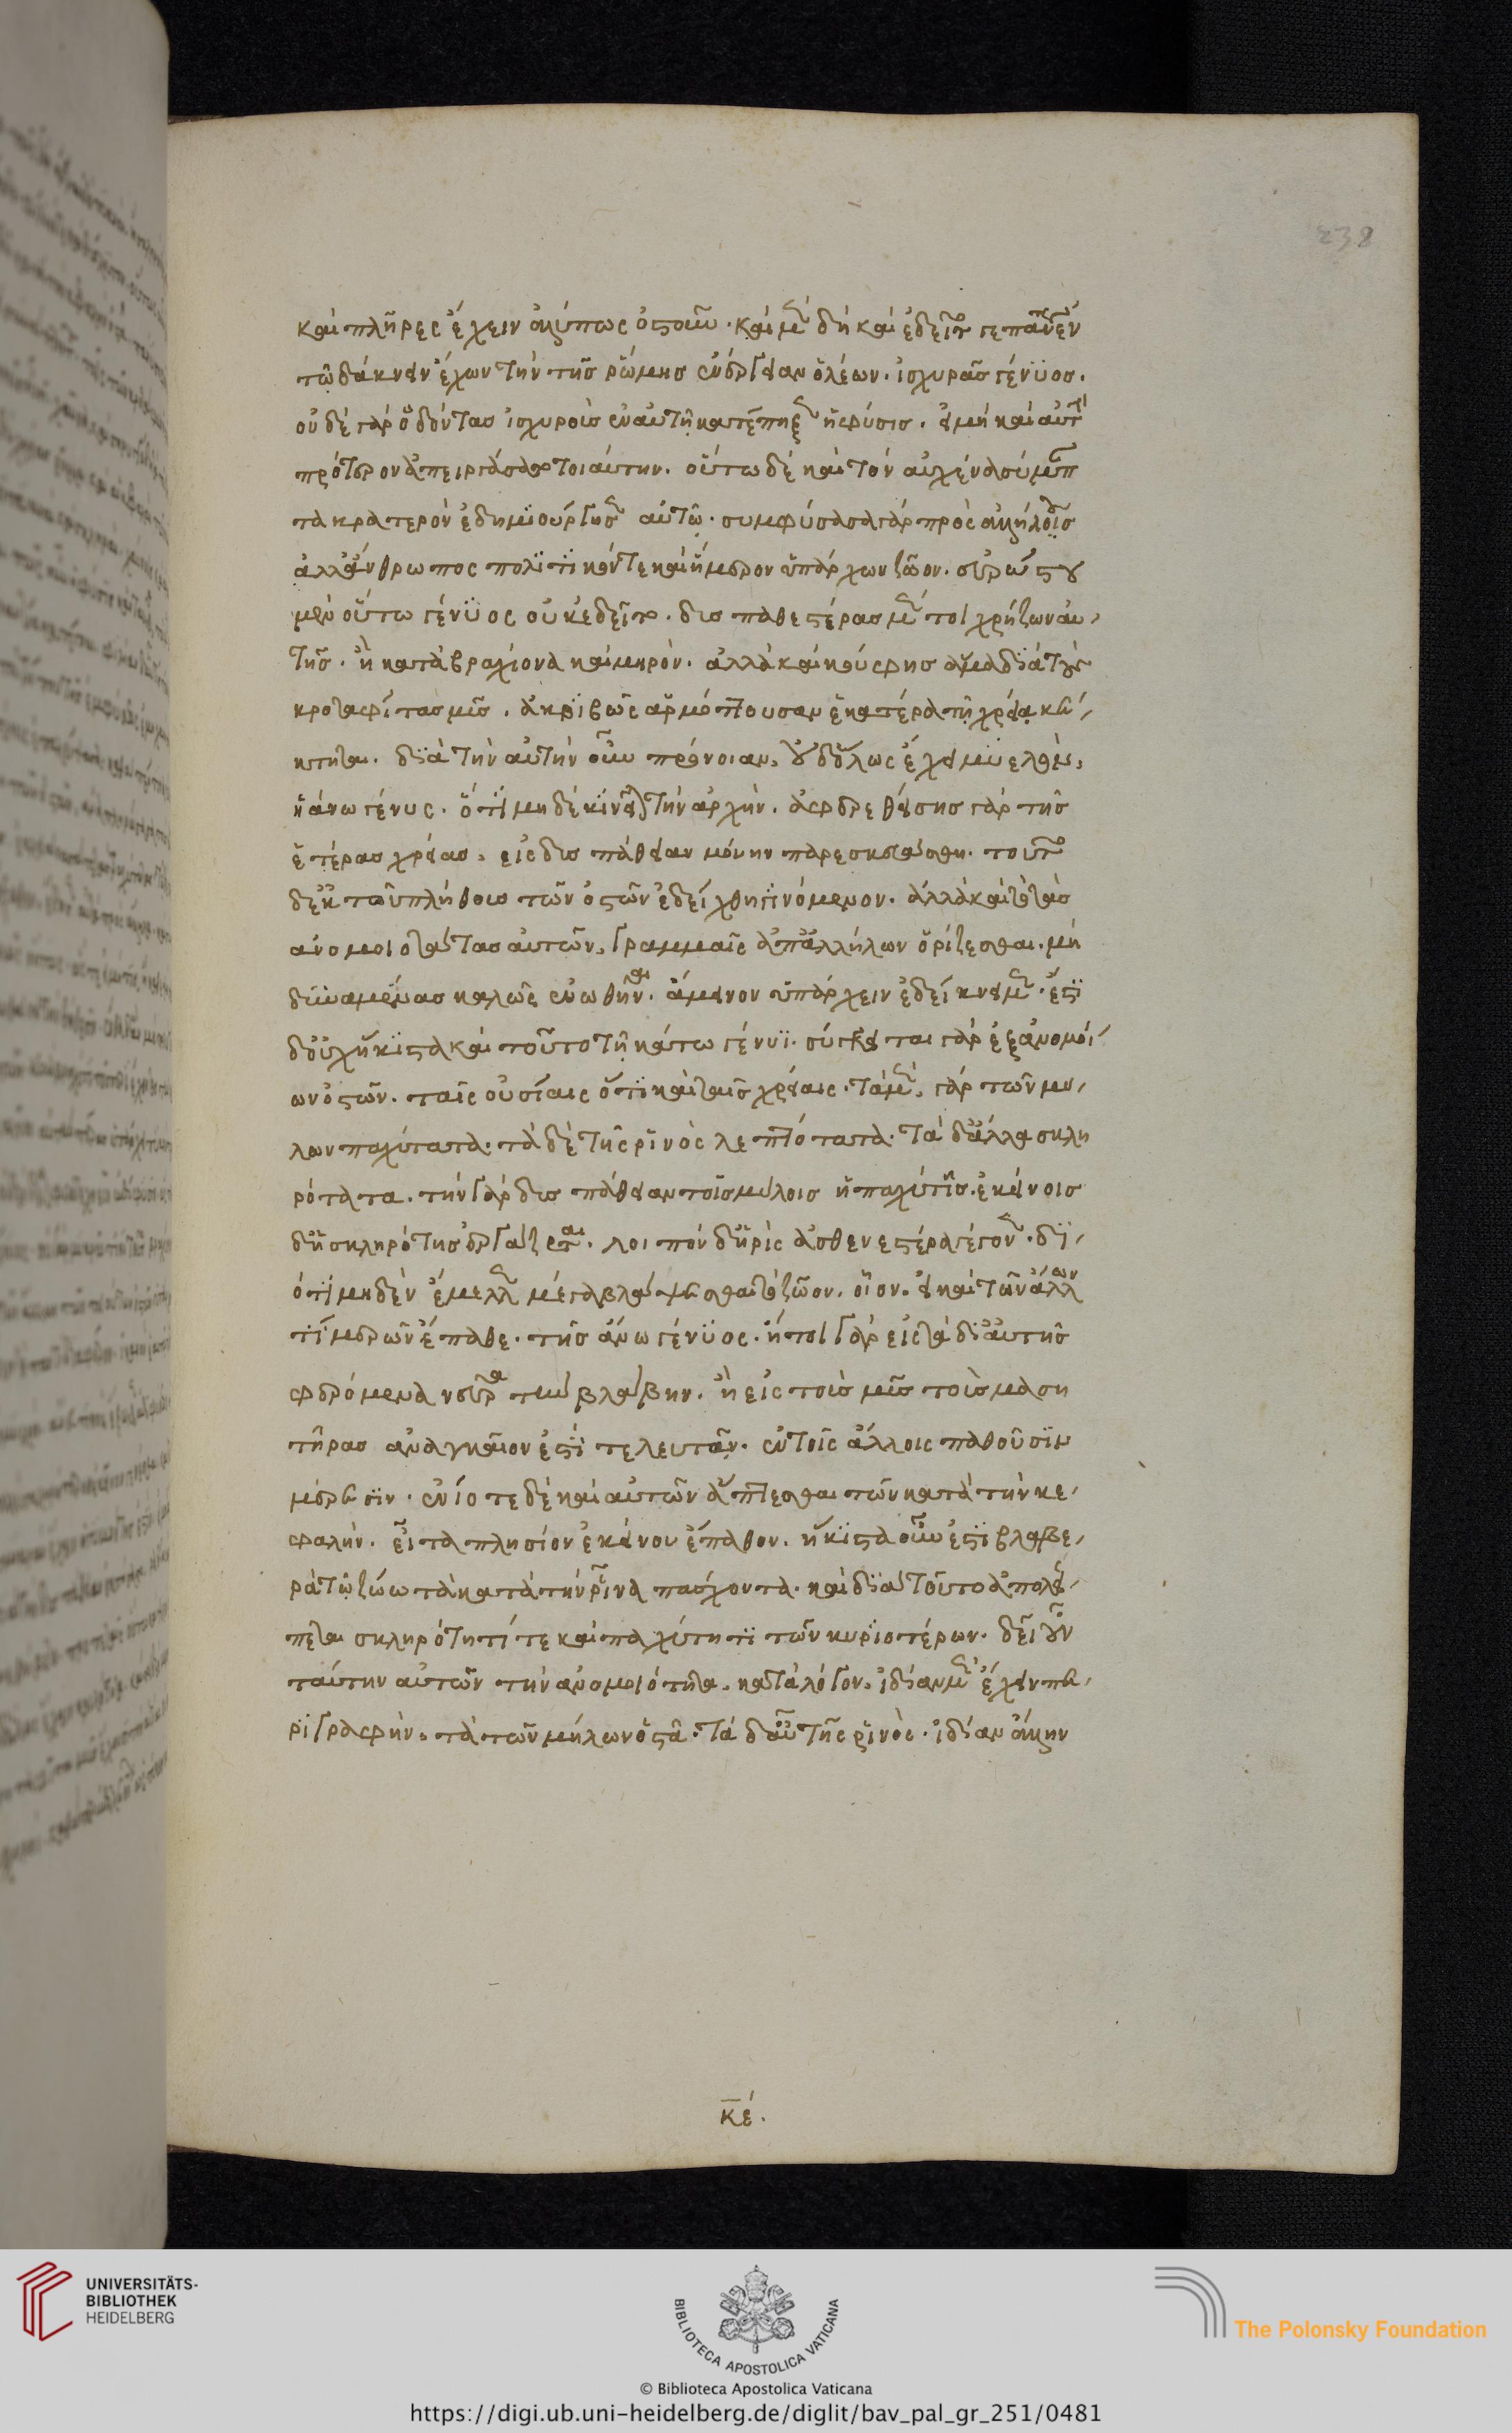 238
καὶ πλῆρες ἔχειν ἀλύπως ὀστοῦν. καὶ μὲν δὴ καὶ ἐδεῖτό γε πάντως ἐν
τῷ δάκνειν ἔχων τὴν τῆς ῥώμης ἐνέργειαν ὁ λέων. ἰσχυρᾶς γένυος.
οὐδὲ γὰρ ὀδόντας ἰσχυροὺς ἐν αὐτῇ κατέπηξεν ἡ φύσις. εἰ μὴ καὶ αὐτὴν
πρότερον ἀπειργάσατο τοιαύτην. οὕτω δὲ καὶ τὸν αὐχένα σύμπαν
τα κρατερὸν ἐδημιούργησεν αὐτῷ. συμφύσασα γὰρ πρὸς ἀλλήλους
ἀλλ' ἄνθρωπος πολιτικόν τε καὶ ἥμερον ὑπάρχων ζῷον. εὐρώστου
μὲν οὕτω γένυος οὐκ ἐδεῖτο. δυσπαθεστέρας μέντοι χρῄζων αὐ-
τῆς. ἢ κατὰ βραχίονα καὶ μηρόν. ἀλλὰ καὶ κούφης ἅμα διὰ τοὺς
κροταφίτας μῦς. ἀκριβῶς ἁρμόττουσαν ἑκατέρᾳ τῇ χρείᾳ κέ-
κτηται. διὰ τὴν αὐτὴν οὖν πρόνοιαν, οὐδ' ὅλως ἔχει μυελὸν,
ἡ ἄνω γένυς. ὅτι μηδὲ κινεῖται τὴν ἀρχήν. ἀφαιρεθείσης γὰρ τῆς
ἑτέρας χρείας, εἰς δυσπάθειαν μόνην παρεσκευάσθη. τοῦτο
δ' ἐκ τοῦ πλήθους τῶν ὀστῶν ἐδείχθη γινόμενον. ἀλλὰ καὶ τὸ τὰς
ἀνομοιότητας αὐτῶν, γραμμαῖς ἀπ' ἀλλήλων ὁρίζεσθαι. μὴ
δυναμένας καλῶς ἑνωθῆναι. ἄμεινον ὑπάρχειν ἐδείκνυμεν. ἔστι
δ' οὐχ ἥκιστα καὶ τοῦτο τῇ κάτω γένυι. σύγκειται γὰρ ἐξ ἀνομοί-
ων ὀστῶν. ταῖς οὐσίαις ὅτι καὶ ταῖς χρείαις. τὰ μὲν, γὰρ τῶν μή-
λων παχύτατα. τὰ δὲ τῆς ῥινὸς λεπτότατα. τὰ δ' ἄλλα σκλη
ρότατα. τὴν γὰρ δυσπάθειαν τοῖς μήλοις ἡ παχύτης. ἐκείνοις
δ' ἡ σκληρότης ἐργάζεται. λοιπὸν δ' ἡ ῥὶς ἀσθενεστέρα γέγονεν. δι-
ότι μηδὲν ἔμελλεν μέγα βλάψεσθαι τὸ ζῷον. οἷον. εἰ καὶ τῶν ἄλλων
τι μερῶν ἔπαθε. τῆς ἄνω γένυος. ἤτοι γὰρ εἰς τὰ δι' αὐτῆς
φερόμενα νεῦρα τὴν βλάβην. ἢ εἰς τοὺς μῦς τοὺς μαση
τῆρας ἀναγκαῖόν ἐστι τελευτᾶν. ἐν τοῖς ἄλλοις παθοῦσιν
μέρεσιν. ἐνίοτε δὲ καὶ αὐτῶν ἅπτεσθαι τῶν κατὰ τὴν κε-
φαλὴν. εἶτα πλησίον ἐκείνου ἔπαθον. ἥκιστα οὖν ἐστι βλαβε-
ρὰ τῷ ζώῳ τὰ κατὰ τὴν ῥῖνα πάσχοντα. καὶ διὰ τοῦτο ἀπολεί-
πεται σκληρότητί τε καὶ παχύτητι τῶν κυριοτέρων. δεῖ οὖν
ταύτην αὐτῶν τὴν ἀνομοιότητα. κατὰ λόγον, ἰδίαν μὲν ἔχειν πε-
ριγραφὴν. τὰ τῶν μήλων ὀστᾶ. τὰ δ' αὖ τῆς ῥινὸς. ἰδίαν ἄλλην
κέ.
UNIVERSITÄTS-
BIBLIOTHEK
HEIDELBERG
BIBLIOTECA APOSTOLICA VATICANA
The Polonsky Foundation
© Biblioteca Apostolica Vaticana
https://digi.ub.uni-heidelberg.de/diglit/bav_pal_gr_251/0481